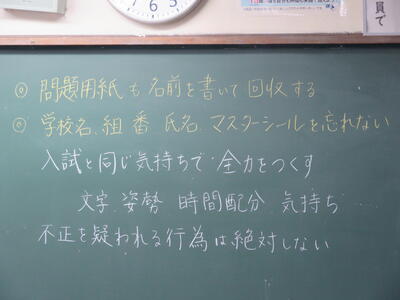 ◎ 問題用紙も名前を書いて回収する
◎ 学校名、組 番 氏名、マスターシールを忘れない
入試と同じ気持ちで全力をつくす
文字 姿勢 時間配分 気持ち
不正を疑われる行為は絶対しない
員で